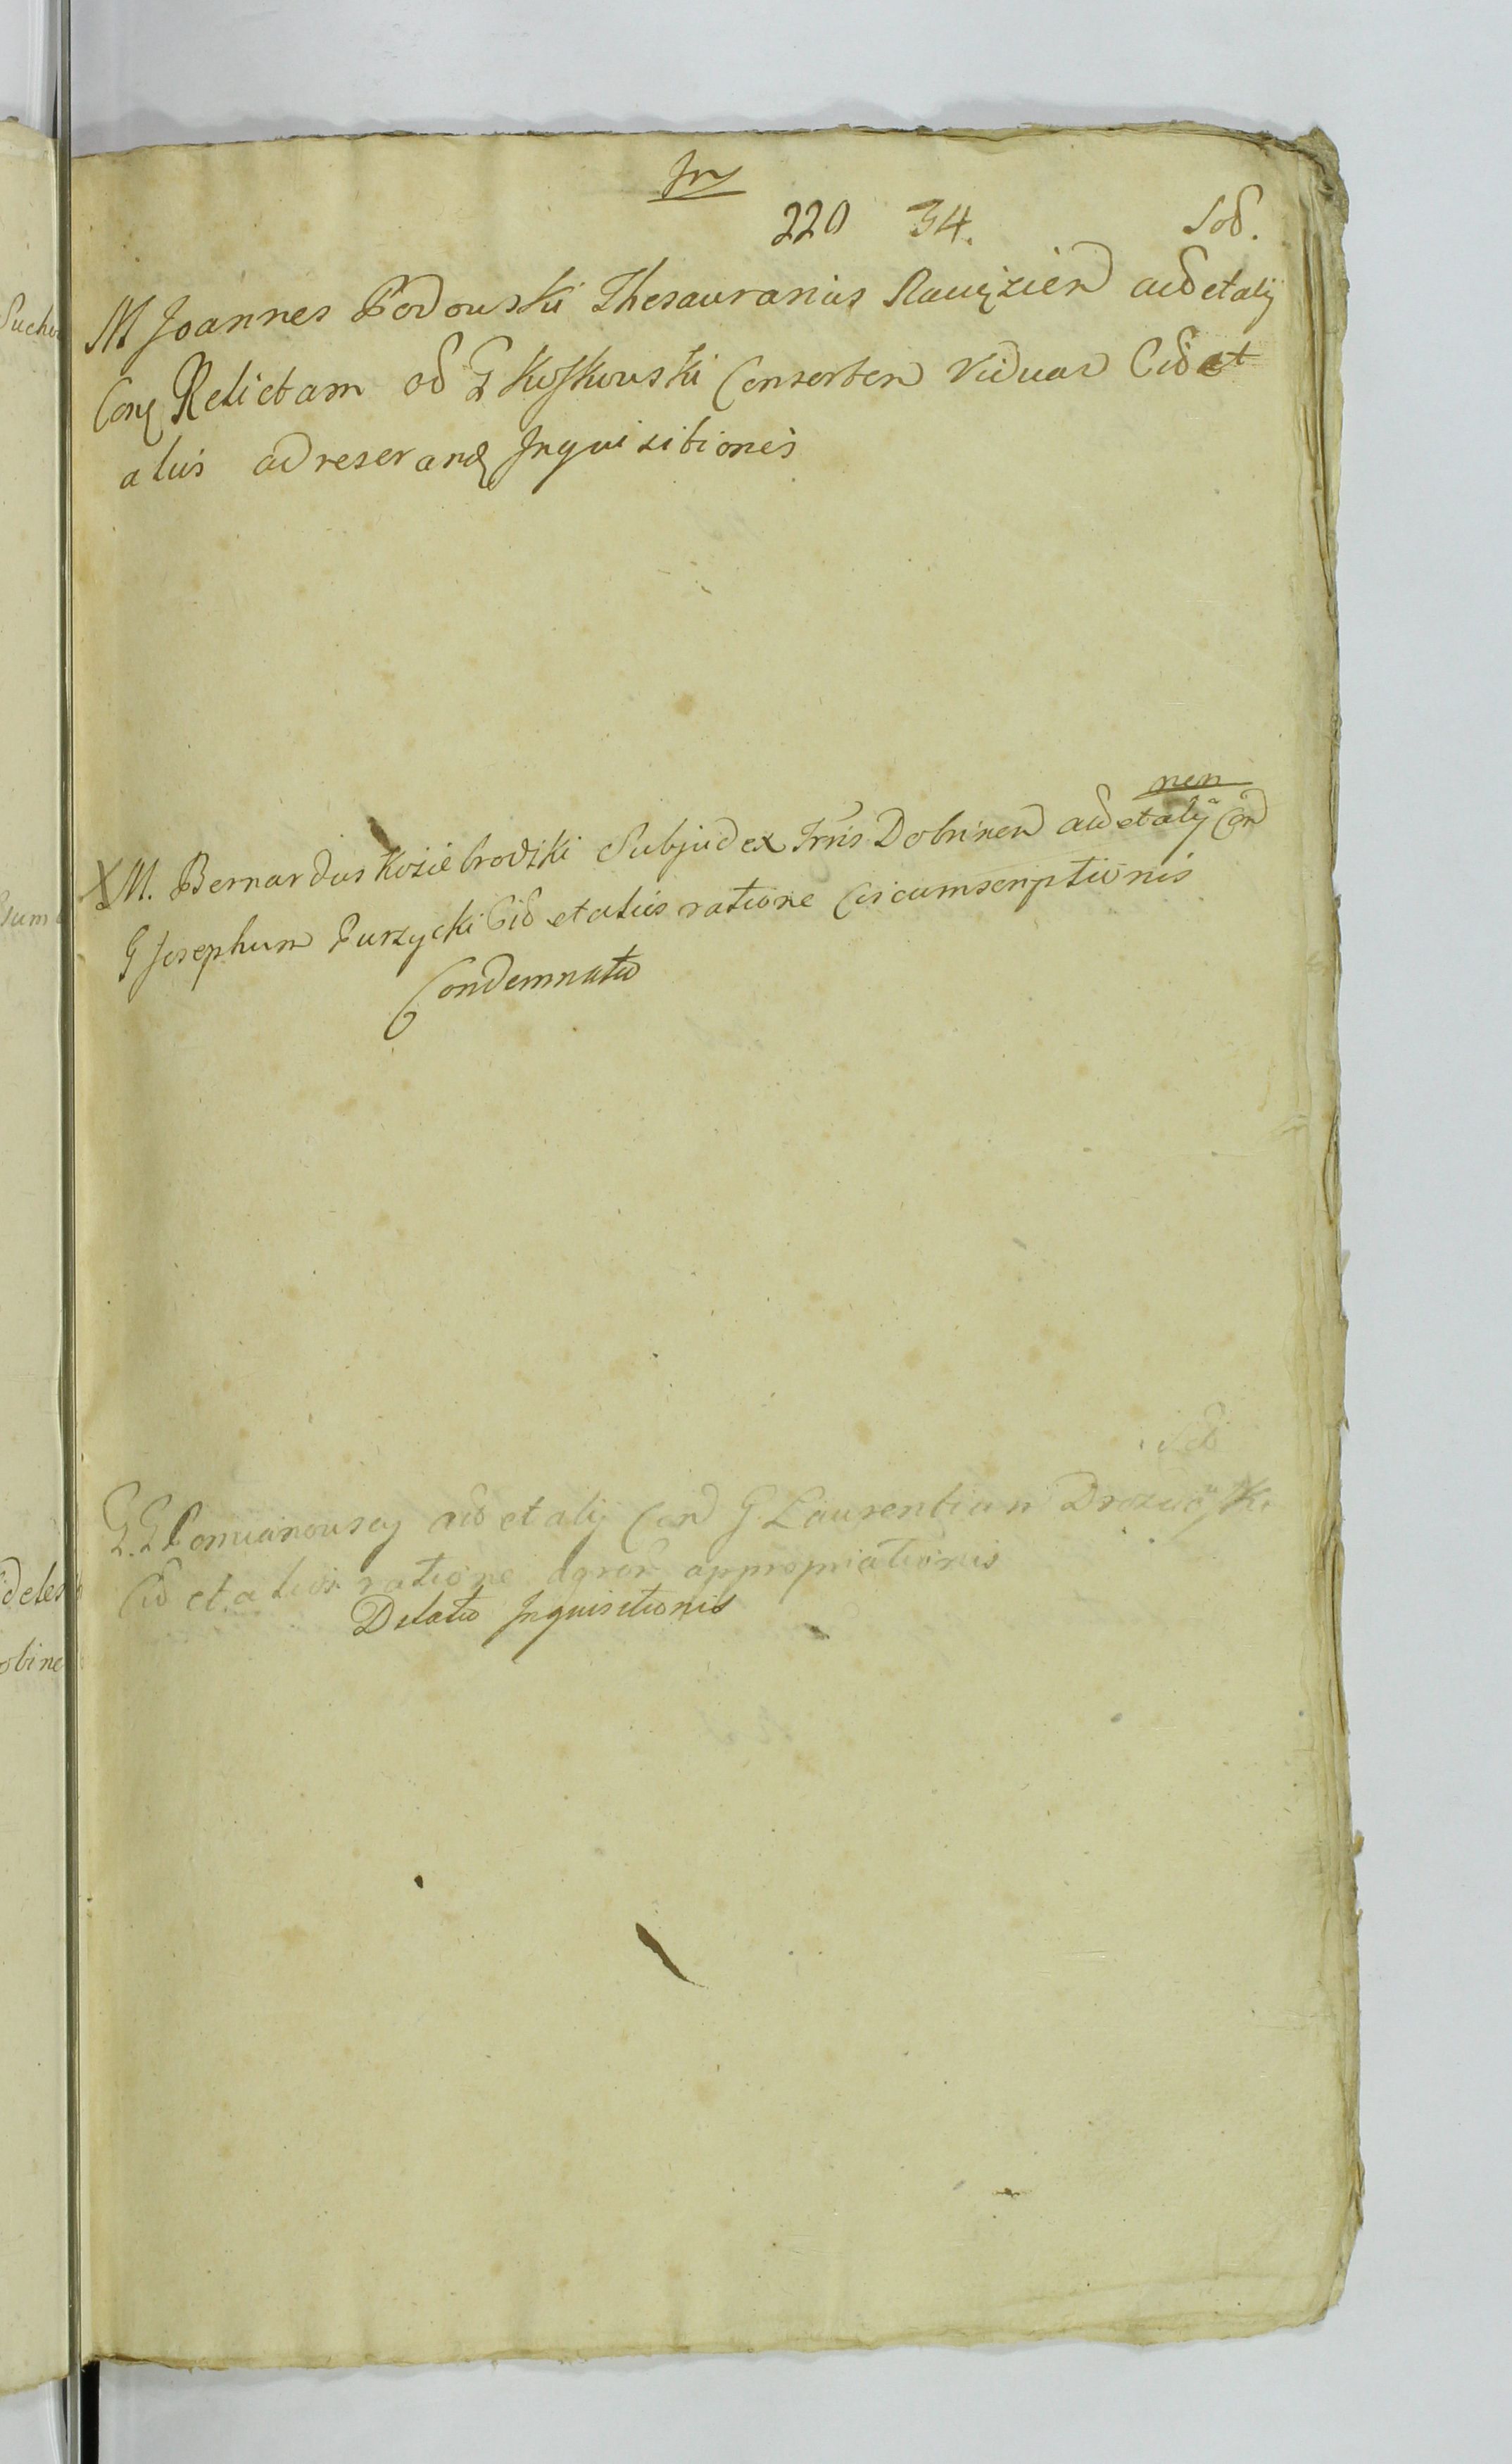 220 34. Sob.
M Joannes Podouski Thesaurarius Rauizien aid et alij
Conq Relictam od G Kosskouski Consorten viduad Cid et
aliis ad reserand Inquisitionis
nen
X M. Bernardus Koziebrodzki Subjudex Trris Dobrinen aid et alij Con
G Josephum Purzycki Cid et aliis ratione Circumscriptionis
Condemnatio
G.G Pomianouscy aid et alij Con G. Laurentium
Cid et aliis ratione appropriationis
Delatio Inquisitionis